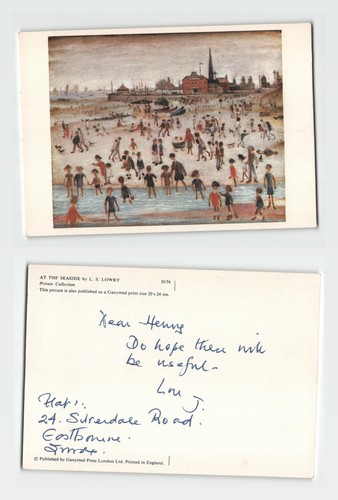 AT THE SEASIDE by L. S. LOWRY 0176
Private Collection
This picture is also published as a Ganymed print size 20 x 24 ins.
Dear Henry
Do hope these will
be useful-
J.
24. Silverdale Road.
Eastbourne.
© Published by Ganymed Press London Ltd. Printed in England.